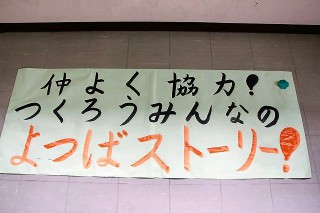 仲よく協力!
つくろうみんなの
よつばストーリー!